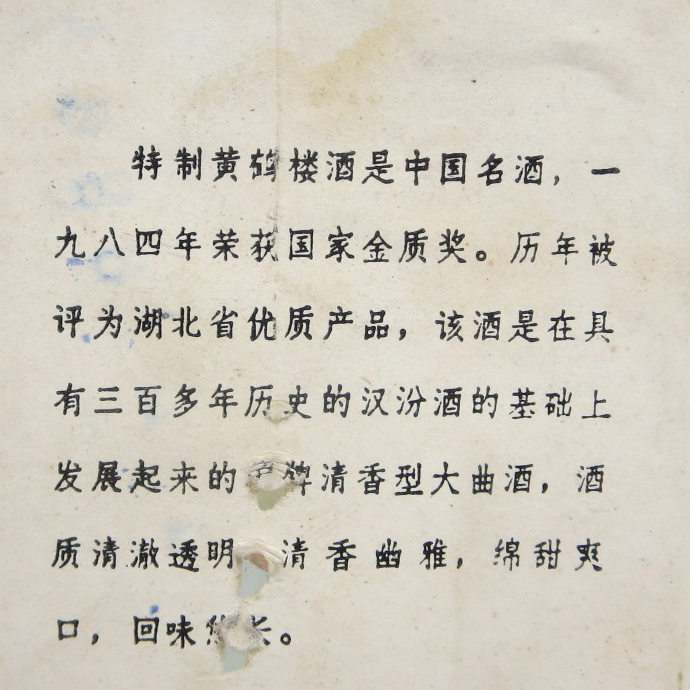 特制黄鹤楼酒是中国名酒，一
九八四年荣获国家金质奖。历年被
评为湖北省优质产品，该酒是在具
有三百多年历史的汉汾酒的基础上
发展起来的牌清香型大曲酒，酒
质清澈透明 清香幽雅，绵甜爽
口，回味悠长。